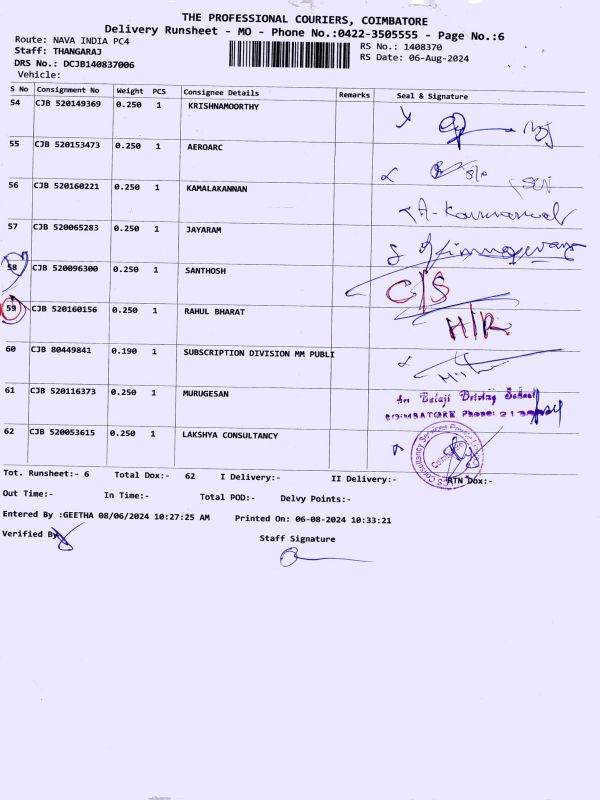 THE PROFESSIONAL COURIERS, COIMBATORE
Delivery Runsheet - MO - Phone No.:0422-3505555 - Page No.:6
Route: NAVA INDIA PC4 RS No.: 1408370
Staff: THANGARAJ RS Date: 06-Aug-2024
DRS No.: DCJB140837006
Vehicle:
S No Consignment No Weight PCS Consignee Details Remarks Seal & Signature
54 CJB 520149369 0.250 1 KRISHNAMOORTHY
55 CJB 520153473 0.250 1 AEROARC
56 CJB 520160221 0.250 1 KAMALAKANNAN
57 CJB 520065283 0.250 1 JAYARAM
58 CJB 520096300 0.250 1 SANTHOSH C/S
59 CJB 520160156 0.250 1 RAHUL BHARAT H/R
60 CJB 80449841 0.190 1 SUBSCRIPTION DIVISION MM PUBLI
61 CJB 520116373 0.250 1 MURUGESAN Sri Balaji Driving School
COIMBATORE PHONE:
62 CJB 520053615 0.250 1 LAKSHYA CONSULTANCY
Tot. Runsheet:- 6 Total Dox:- 62 I Delivery:- II Delivery:- RTN Dox:-
Out Time:- In Time:- Total POD:- Delvy Points:-
Entered By :GEETHA 08/06/2024 10:27:25 AM Printed On: 06-08-2024 10:33:21
Verified By
Staff Signature